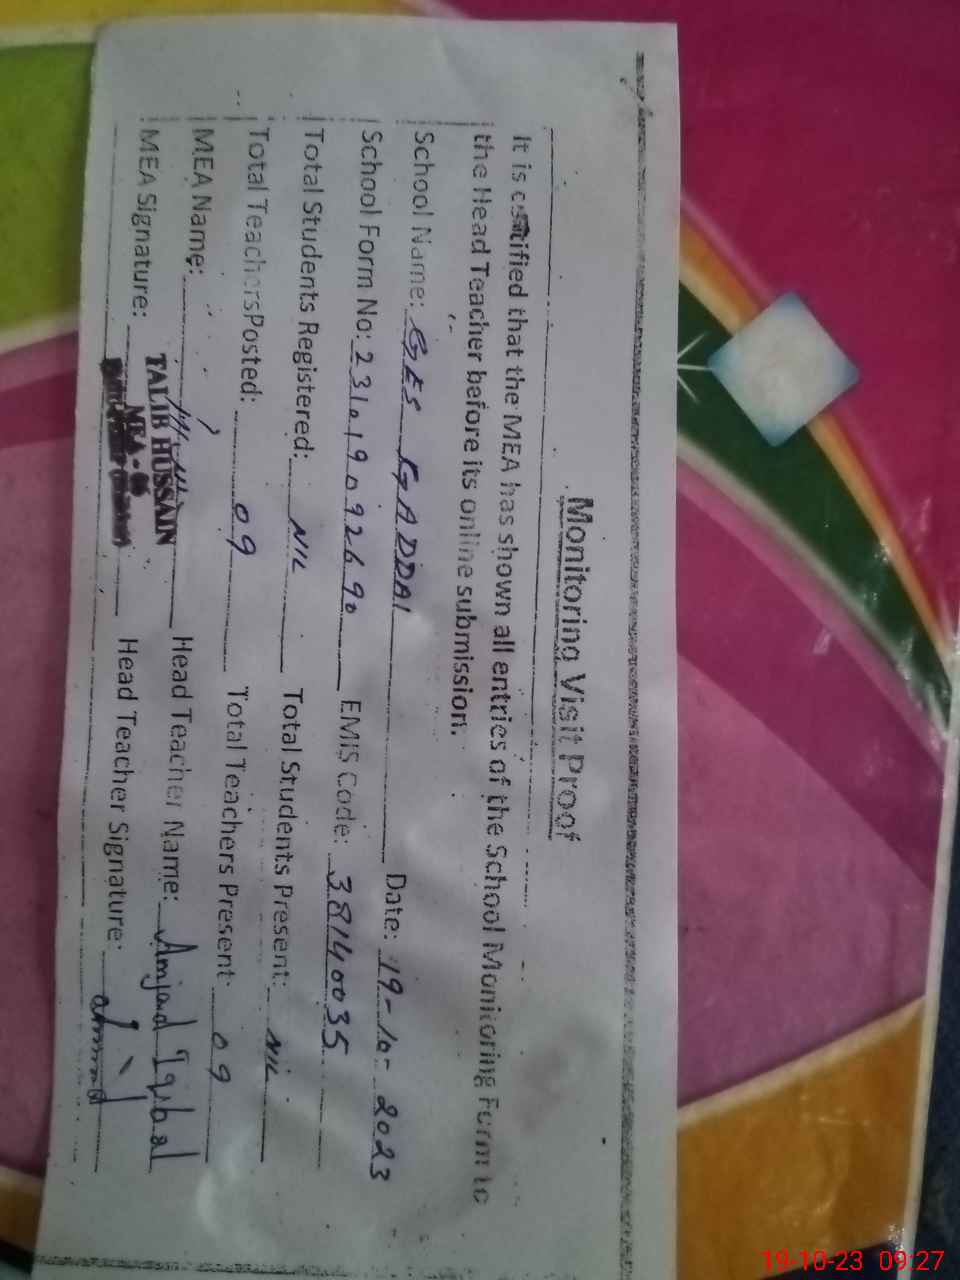 Monitoring Visit Proof
It is certified that the MEA has shown all entries of the School Monitoring Form to
the Head Teacher before its online submission.
School Name: GES GADDAI Date: 19-10-2023
School Form No: 231019092690 EMIS Code: 38140035
Total Students Registered: NIL Total Students Present: NIL
Total Teachers Posted: 09 Total Teachers Present: 09
MEA Name: Head Teacher Name: Amjad Iqbal
MEA Signature: Head Teacher Signature:
TALIB HUSSAIN
MEA - 06
19-10-23 09:27